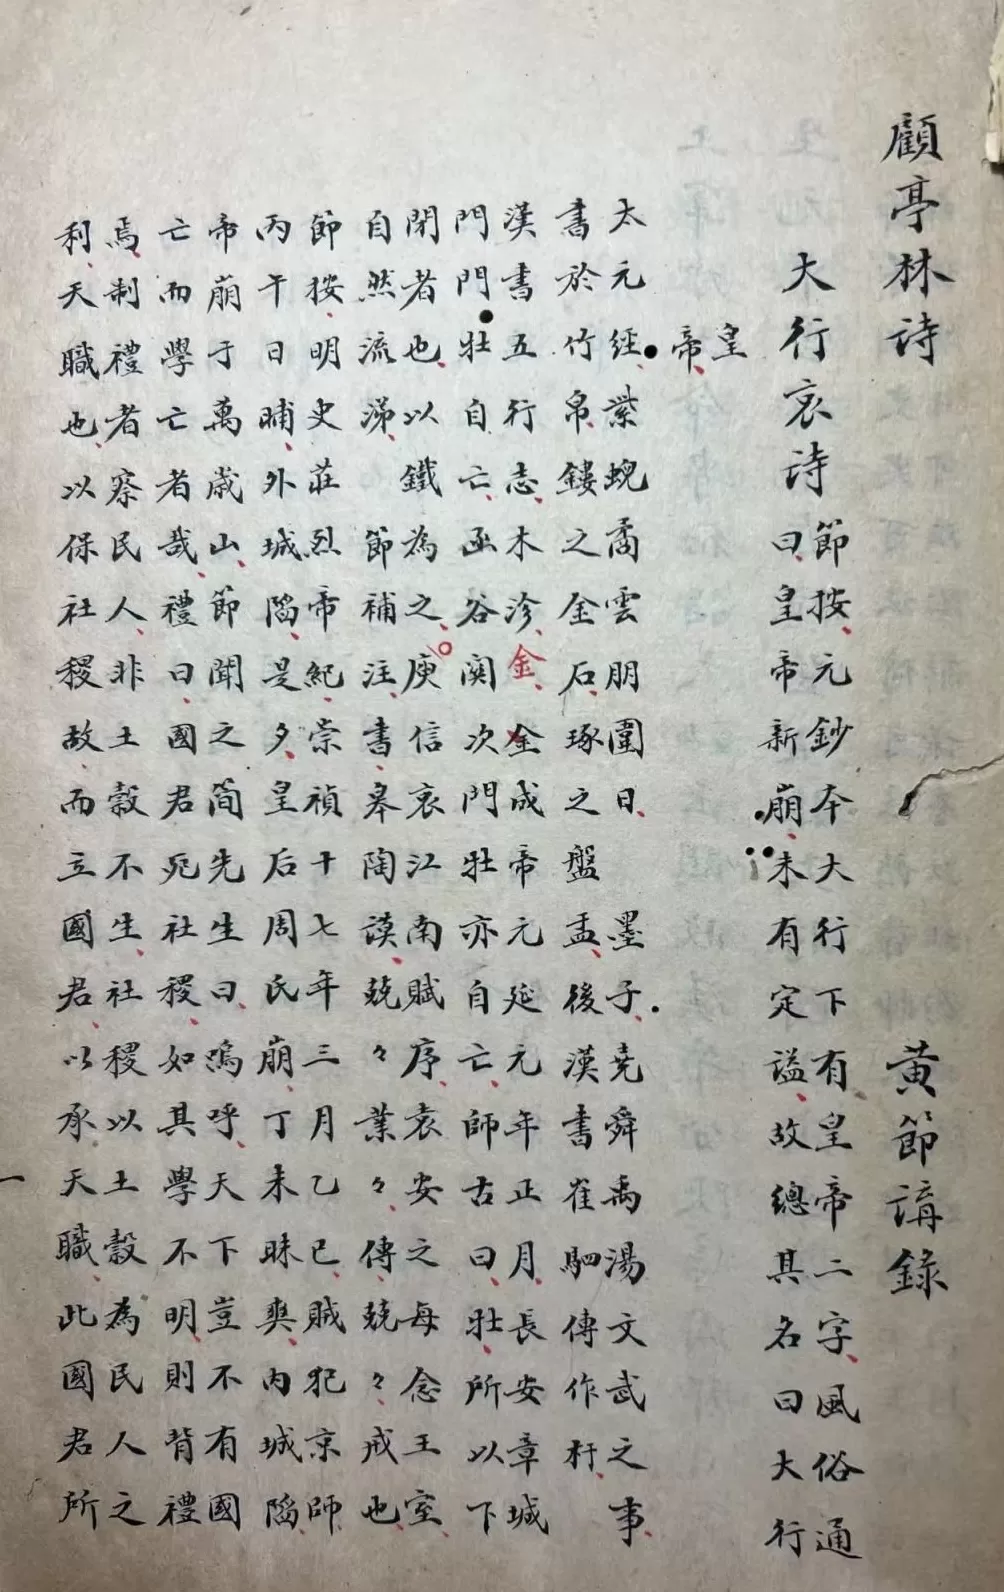 顧亭林詩 黃節講錄
大行哀詩 節按、元鈔本大行下有皇帝二字、風俗通
曰、皇帝新崩、未有定謚、故總其名曰大行
皇
帝、
太元經、紫蜺矞雲朋圍日、墨子、堯舜禹湯文武之事、
書於竹帛、鏤之金石、琢之盤盂、後漢書崔駰傳作杅、
漢書五行志、木沴、金、金成帝元延元年正月、長安章城
門門牡自亡、函谷関次門牡亦自亡、師古曰、牡、所以下
閉者也、以鐵為之、庾信哀江南賦序、袁安之每念王室、
自然流涕、節補注、書、皋陶謨、兢々業々、傳、兢々戒也、
節按、明史莊烈帝紀、崇禎十七年三月乙巳、賊犯京師、
丙午日晡、外城陷、是夕、皇后周氏崩、丁未昧爽、內城陷、
帝崩于萬歲山、節聞之簡先生曰、嗚呼、天下豈不有國
亡而學亡者哉、禮曰、國君死社稷、如其學不明、則背禮
焉、制禮者察民人、非土穀不生、社稷以土穀為民人之
利、天職也、以保社稷故、而立國君、以承天職、此國君所
一